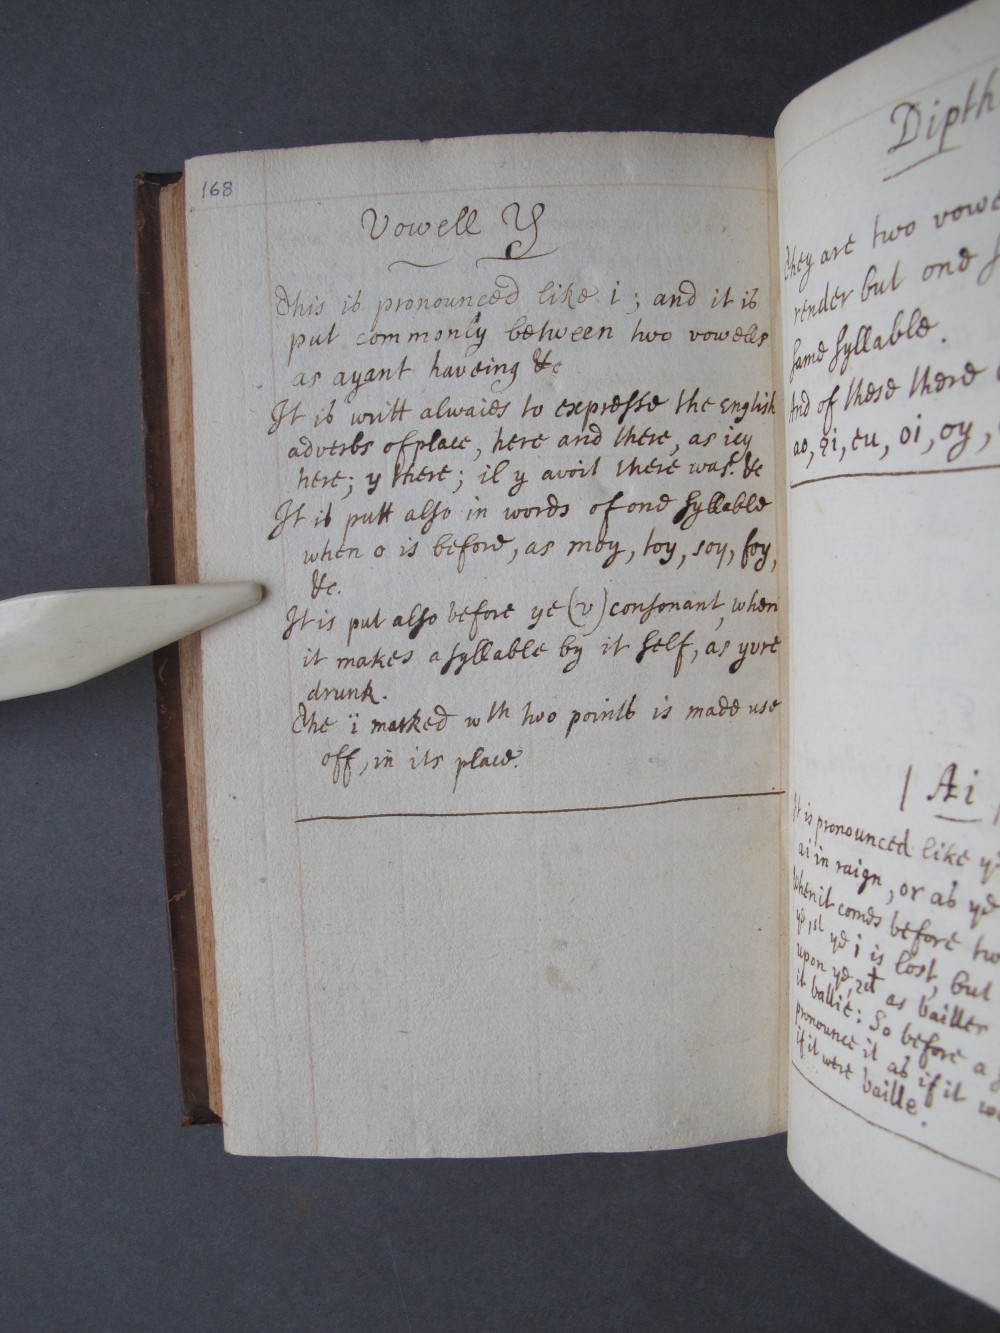 168
Vowell Y
This is pronounced like i; and it is
put commonly between two vowells
as ayant haveing &c
It is writt alwaies to expresse the English
adverbs of place, here and there, as icy
here; y there; il y avoit there was. &c
It is putt also in words of one syllable
when o is before, as moy, toy, soy, foy,
&c.
It is put also before ye (v) consonant, when
it makes a syllable by it self, as yvre
drunk.
The ï marked wth two points is made use
off, in its place.
Dipth
They are two vowe
render but one s
same syllable.
And of these there
ao, ei, eu, oi, oy,
Ai
It is pronounced like ye
ai in raign, or as ye
When it comes before two
ye, st ye i is lost, but
upon ye, as bailler
it ballie: So before a
pronounce it as if it we
if it were baille.